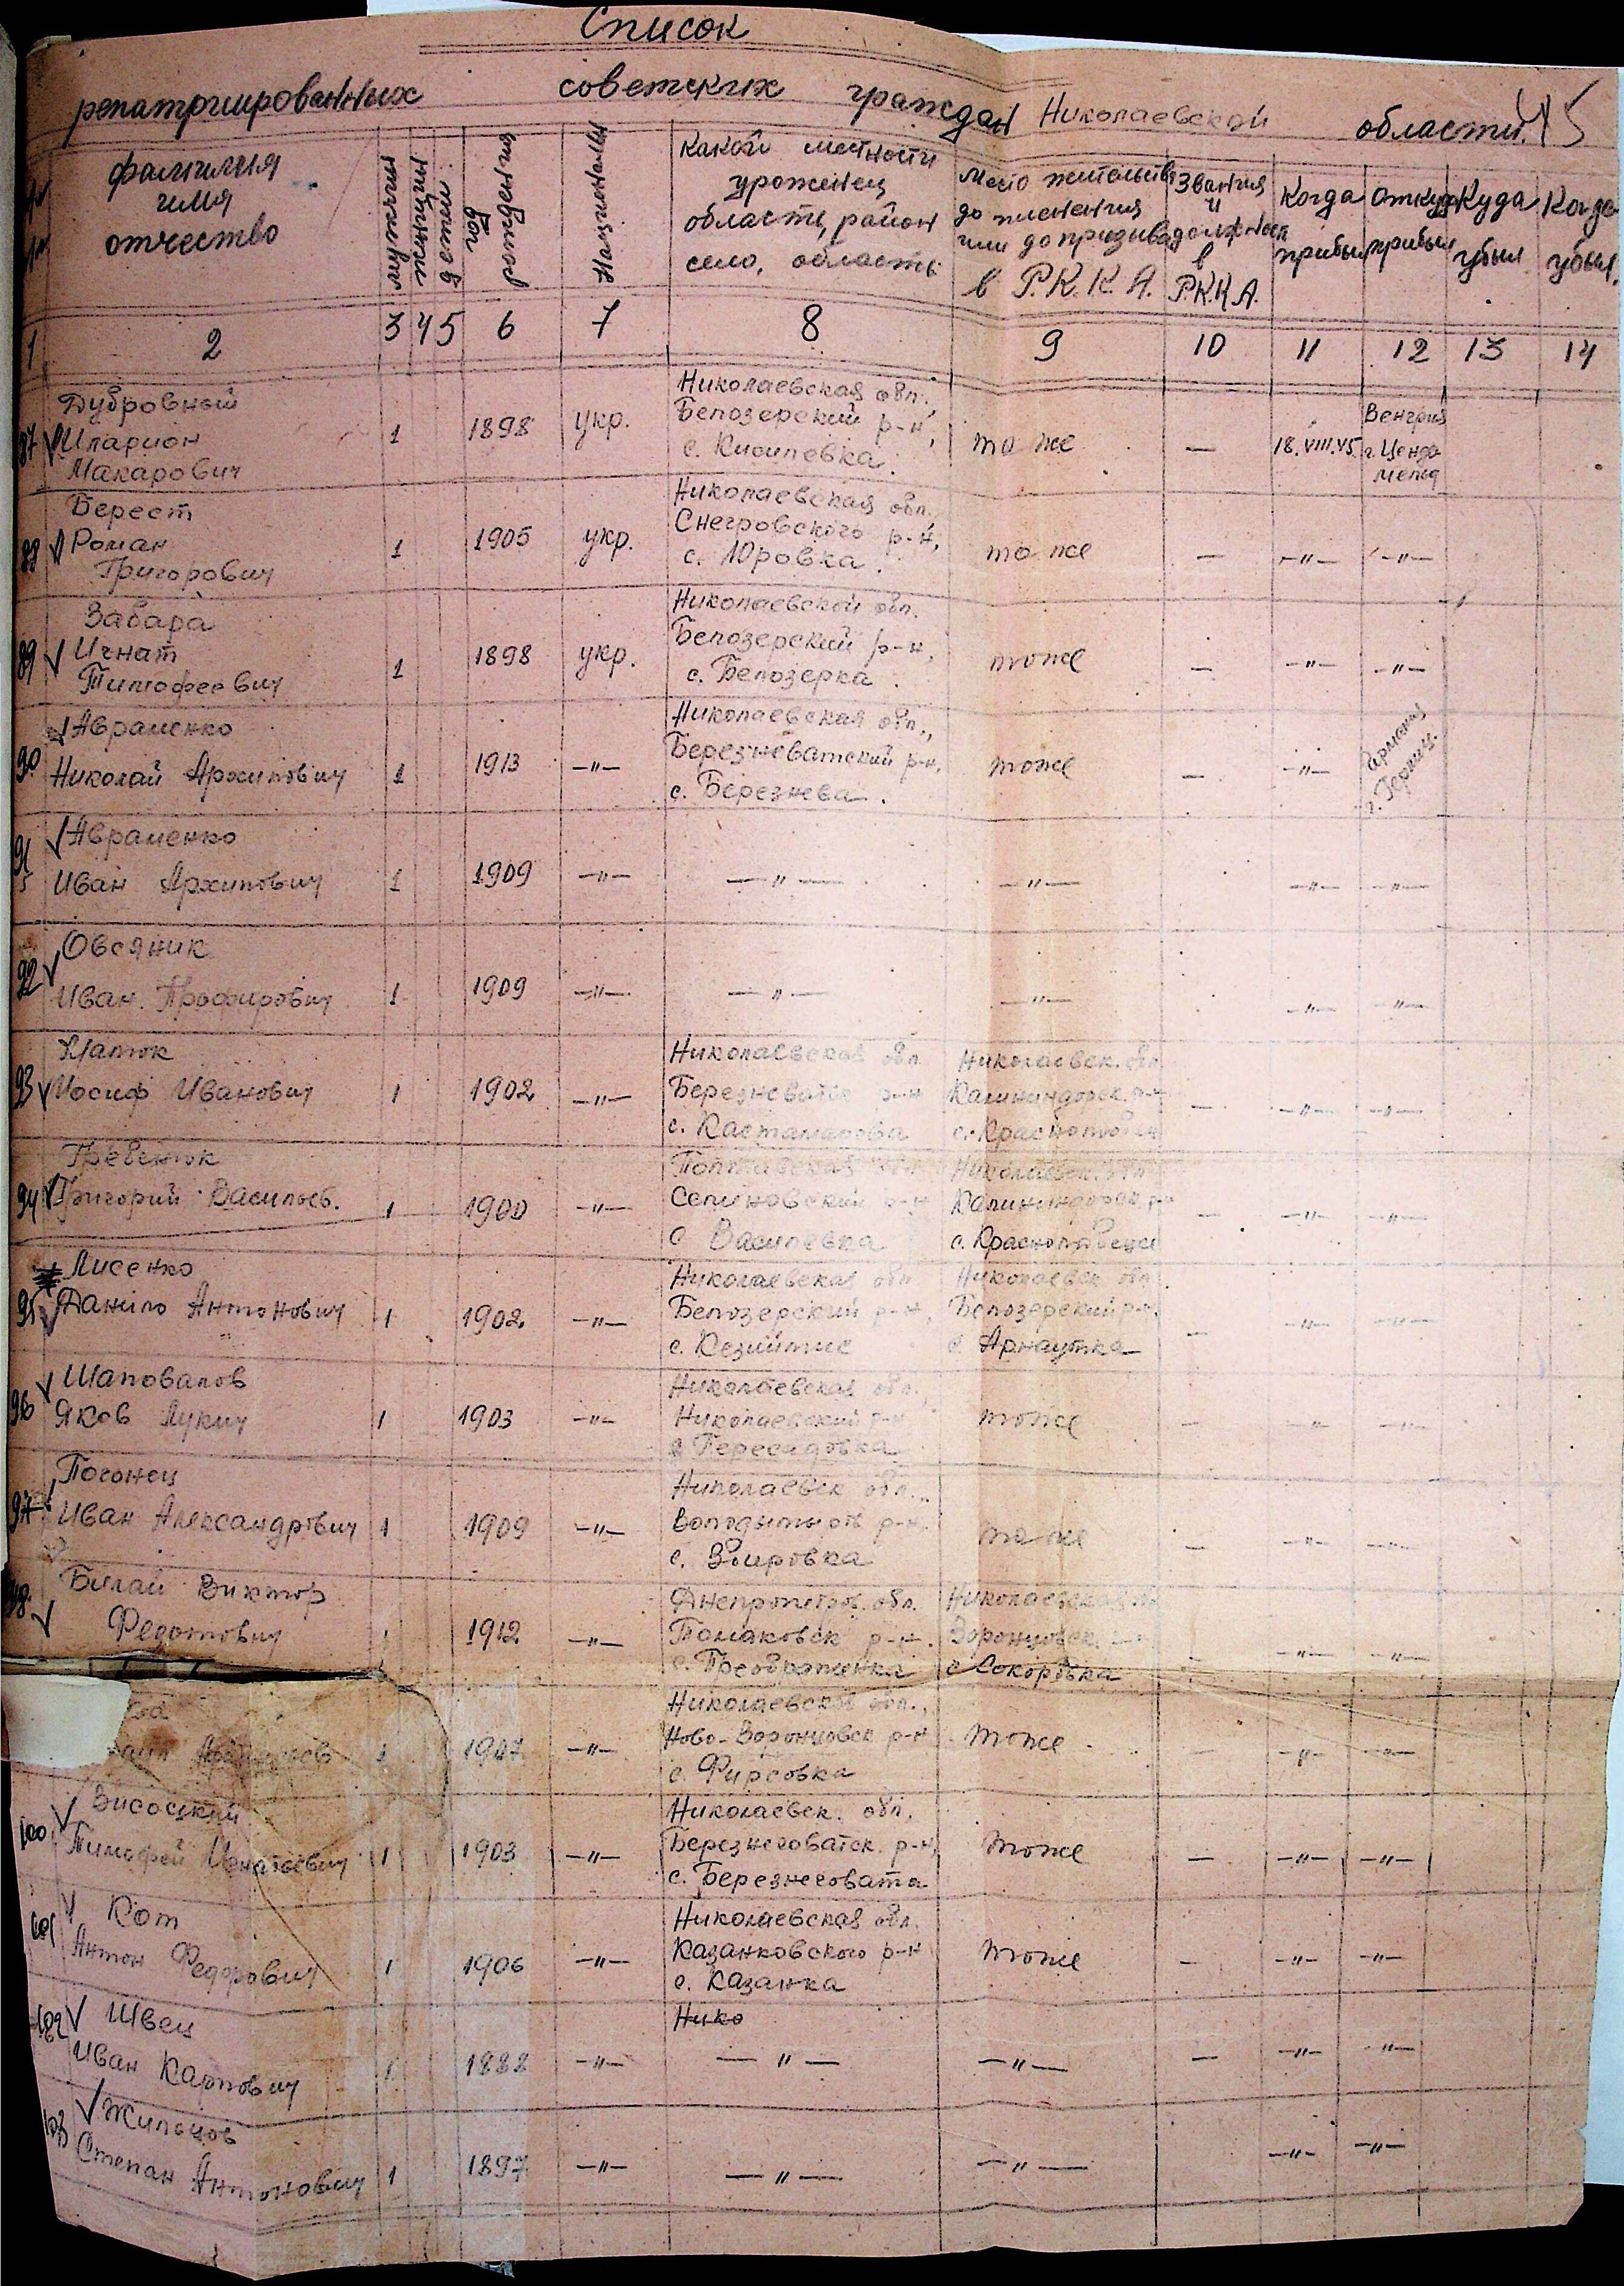 Список
репатриированных советских граждан Николаевской области. 45
фамилия имя отчество
мужчин
женщин
детей
Год рождения
Национальн.
Какой местности уроженец область, район село, область
Место жительства до пленения или до призыва в Р.К.К.А.
Звания и должность в Р.К.К.А.
Когда прибыл
Откуда прибыл
Куда убыл
Когда убыл.
1 2 3 4 5 6 7 8 9 10 11 12 13 14
87 Дубровный Иларион Макарович 1 1898 укр. Николаевская обл., Белозерский р-н, с. Кисилевка. то же — 18.VIII.45. Венгрия г.
88 Берест Роман Григорович 1 1905 укр. Николаевская обл. р-н, с. Юровка. то же — —"— —"—
89 Забара Игнат Тимофеевич 1 1898 укр. Николаевской обл. Белозерский р-н, с. Белозерка. тоже — —"— —"—
90 Авраменко Николай Архипович 1 1913 —"— Николаевская обл., Березневатский р-н, с. Березнева. тоже — —"— г.
91 Авраменко Иван Архипович 1 1909 —"— —"— —"— —"— —"—
92 Овсяник Иван 1 1909 —"— —"— —"— —"— —"—
93 Иосиф Иванович 1 1902 —"— Николаевская обл. р-н с. Николаевск. обл. Калининдорск. р-н с. — —"— —"—
94 Гребенюк Григорий Васильев. 1 1900 —"— Полтавская обл. р-н с Василевка Николаевск. обл. Калининдорск. р-н с. — —"— —"—
95 Лисенко Даніло Антонович 1 1902 —"— Николаевская обл. Белозерский р-н, с. Николаевск. обл. Белозерский р-н. с. Арнаутка — —"— —"—
96 Шаповалов Яков Лукич 1 1903 —"— Николаевская обл., Николаевский р-н с Пересадовка тоже — —"— —"—
97 Погонец Иван Александрович 1 1909 —"— Николаевск обл., р-н. с. то же — —"— —"—
98. Билай Виктор Федотович 1 1912 —"— Днепропетров. обл. Томаковск р-н. с. Преображенка Николаевская с — —"— —"—
1907 —"— Николаевской обл., Ново-Воронцовск р-н с. Фирсовка тоже — —"— —"—
100 Висоцкий Тимофей Игнатьевич 1 1903 —"— Николаевск. обл. Березнеговатск р-н, с. Березнеговата тоже — —"— —"—
101 Кот Антон Федорович 1 1906 —"— Николаевская обл. Казанковского р-н с. Казанка тоже — —"— —"—
102 Швец Иван Карпович 1 1888 —"— Нико —"— —"— — —"— —"—
103 Жильцов Степан Антонович 1 1897 —"— —"— —"— —"— —"—